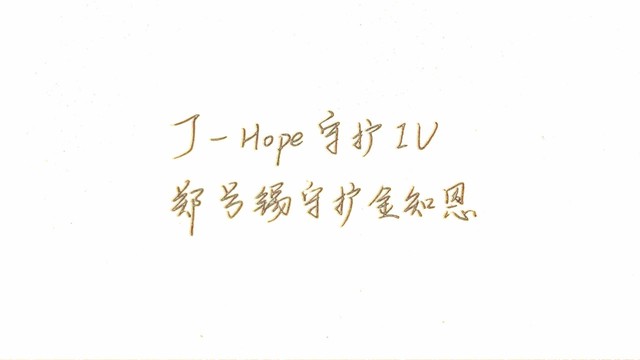 J-Hope守护IU
郑号锡守护金知恩